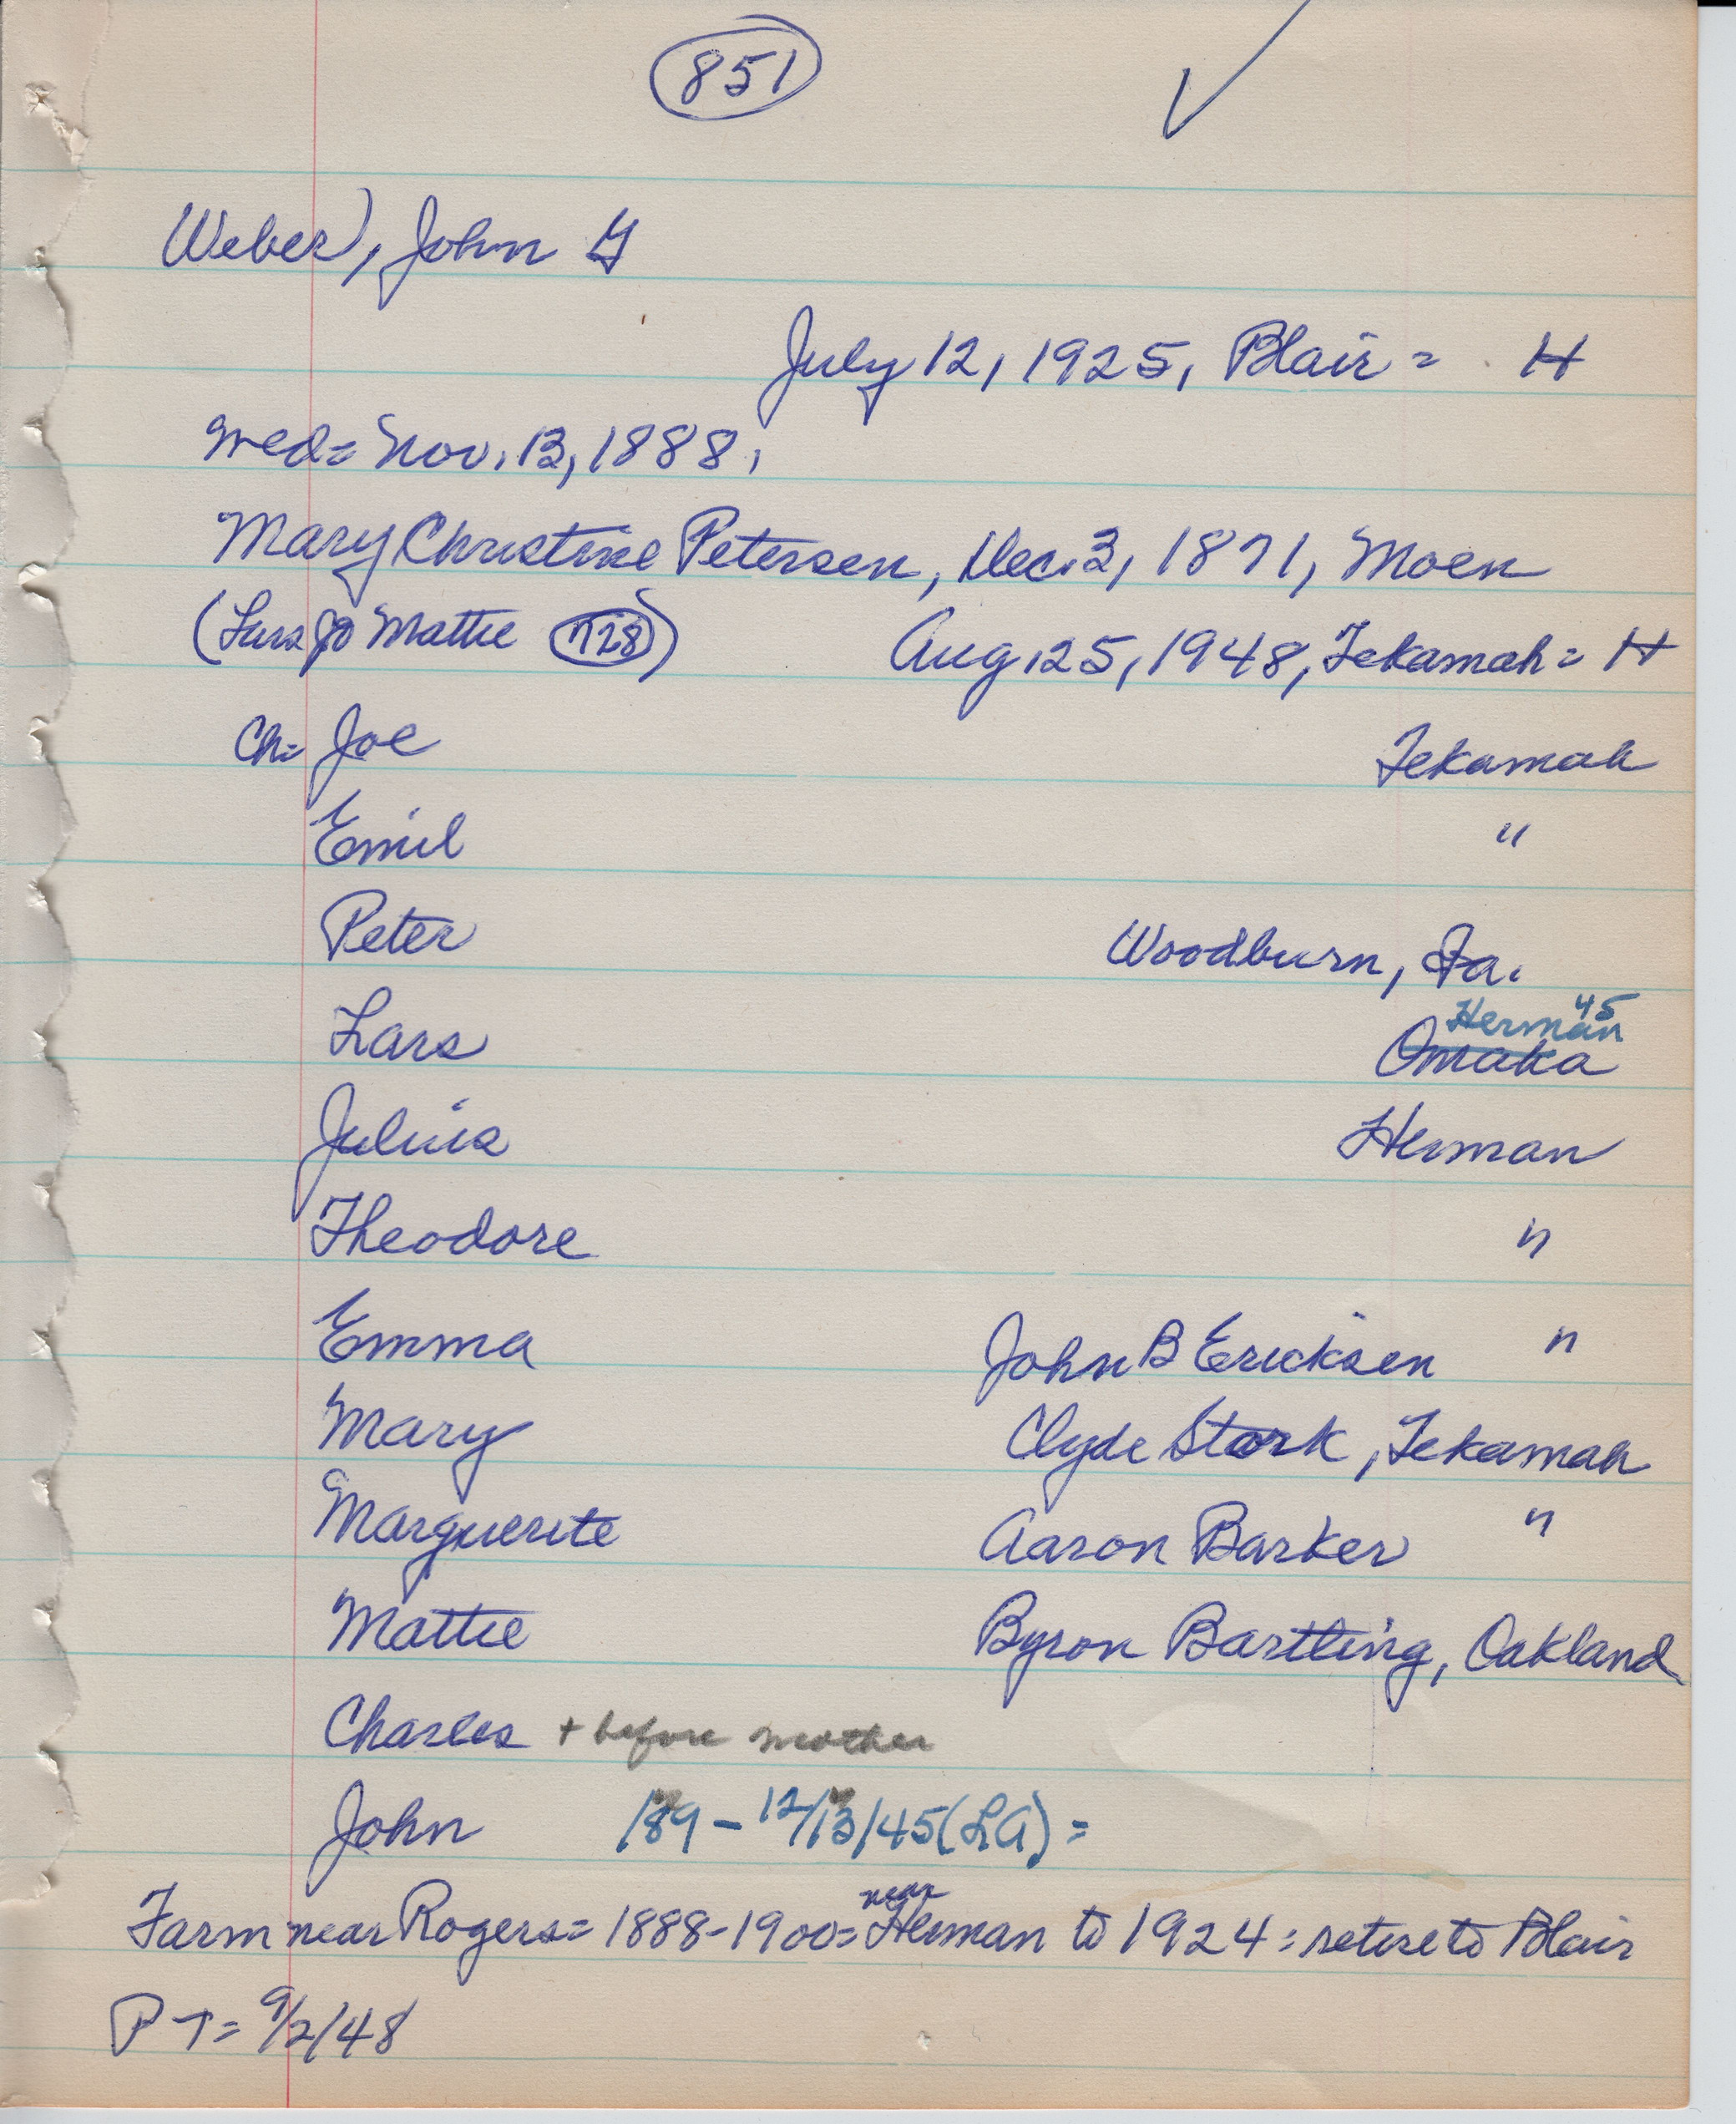 851 ✓
Weber, John G
July 12, 1925, Blair = H
wed = Nov. 13, 1888,
Mary Christine Petersen, Dec. 3, 1871, Moen
(Lars Jo Mattie 728) Aug. 25, 1948, Tekamah = H
Ch = Joe Tekamah
Emil "
Peter Woodburn, Ia.
Herman 45
Lars Omaha
Julius Herman
Theodore "
Emma John B Ericksen "
Mary Clyde Stork, Tekamah
Marguerite Aaron Barker "
Mattie Byron Bartling, Oakland
Charles + before mother
John /89 - 12/13/45 (LA) =
Farm near Rogers = 1888-1900 = near Herman to 1924 = retire to Blair
PT = 9/2/48